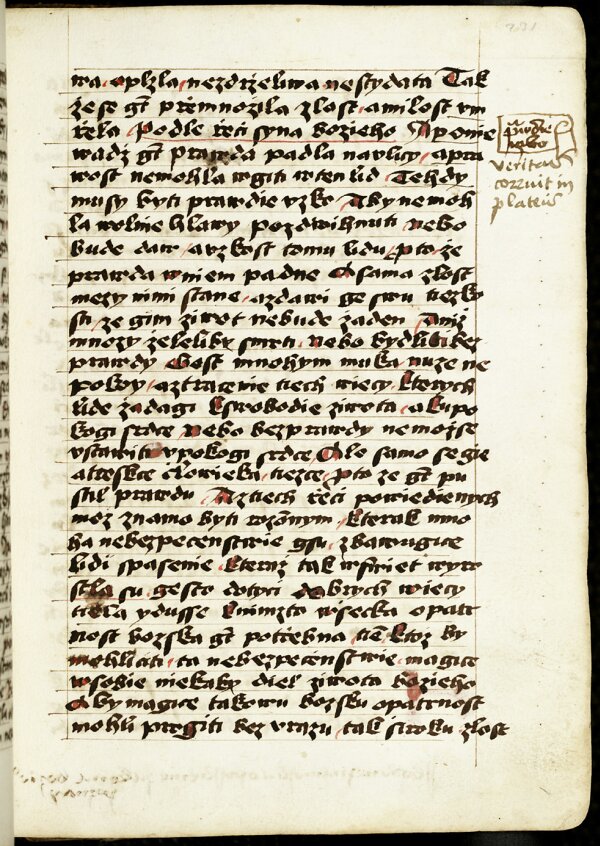 wa, oplzla, nezdrzeliwa nestydata Tak
že se gt přemnožila zlost, a milost vm
řela, podle řeči syna božieho A ponie
wadž gt prawda padla na vlicy, a pra
wost nemohla wgiti w ten lid, Tehdy
musy byti prawdie vzko, Aby nemoh
la wolnie hlawy pozdwihnuti, nebo
bude daw, a vzkost tomu lidu, proto že
prawda w niem padne A sama zlost
mezy nimi stane, a zdawi ge swu tiezko
sti, že gim život nebude žaden, Aniž
mnozy želeliby smrti, nebo bydliti bez
prawdy, gest mnohym muka, nuze ne
pokoy, a ztracenie tiech wiecy, kterych
lide žadagi k swobodie života, a k upo
kogi srdce, nebo bez prawdy nemožse
vstawiti v pokogi srdce, Ale samo se gie
a třeskce človieka, tiezce, proto že gt pu
stil prawdu, A z tiech řeči powiedienych
mož znamo byti rozomnym, kterak mno
ha nebezpečenstwie gsu, zbawugice
lidi spasenie, kteraž tak w swiet wyro
stla su, gesto dotyči dobrych wiecy
tiela y dusse, k nimžto wsecka opatr
nost božska gt potřebna tiem, ktož by
mohli citi, ta nebezpečenstwie, magice
w sobie niekaky diel života božieho
Aby magice takowu božsku opatrnost
mohli progiti bez vrazu, tak siroku zlost
nebo
veritas
corruit in
plateis